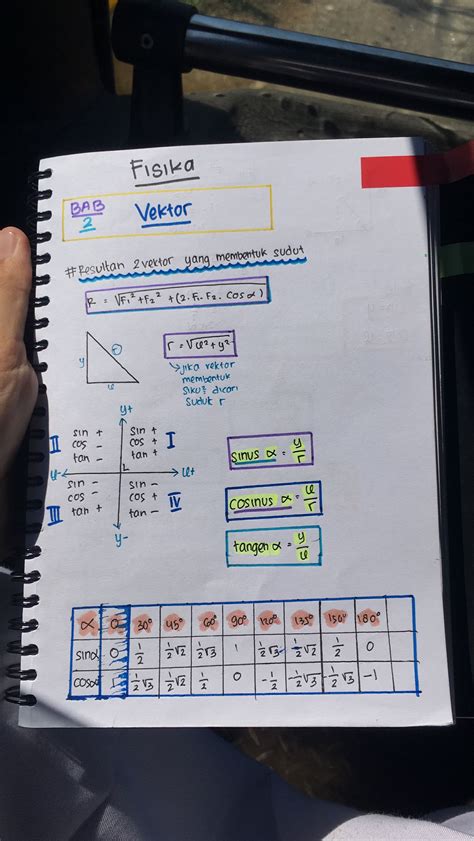 Fisika
BAB 2 Vektor
# Resultan 2 vektor yang membentuk sudut
R = √F₁² + F₂² + (2. F₁. F₂. cos α)
y r x
r = √x² + y²
jika vektor
membentuk
siku² dicari
suduk r
y+
II sin + cos - tan -
sin + cos + tan + I
x- x+
III sin - cos - tan +
sin - cos + tan - IV
y-
sinus α = y/r
cosinus α = x/r
tangen α = y/x
α 0 30° 45° 60° 90° 120° 135° 150° 180°
sin α 0 1/2 1/2√2 1/2√3 1 1/2√3 1/2√2 1/2 0
cos α 1 1/2√3 1/2√2 1/2 0 -1/2 -1/2√3 -1/2√3 -1